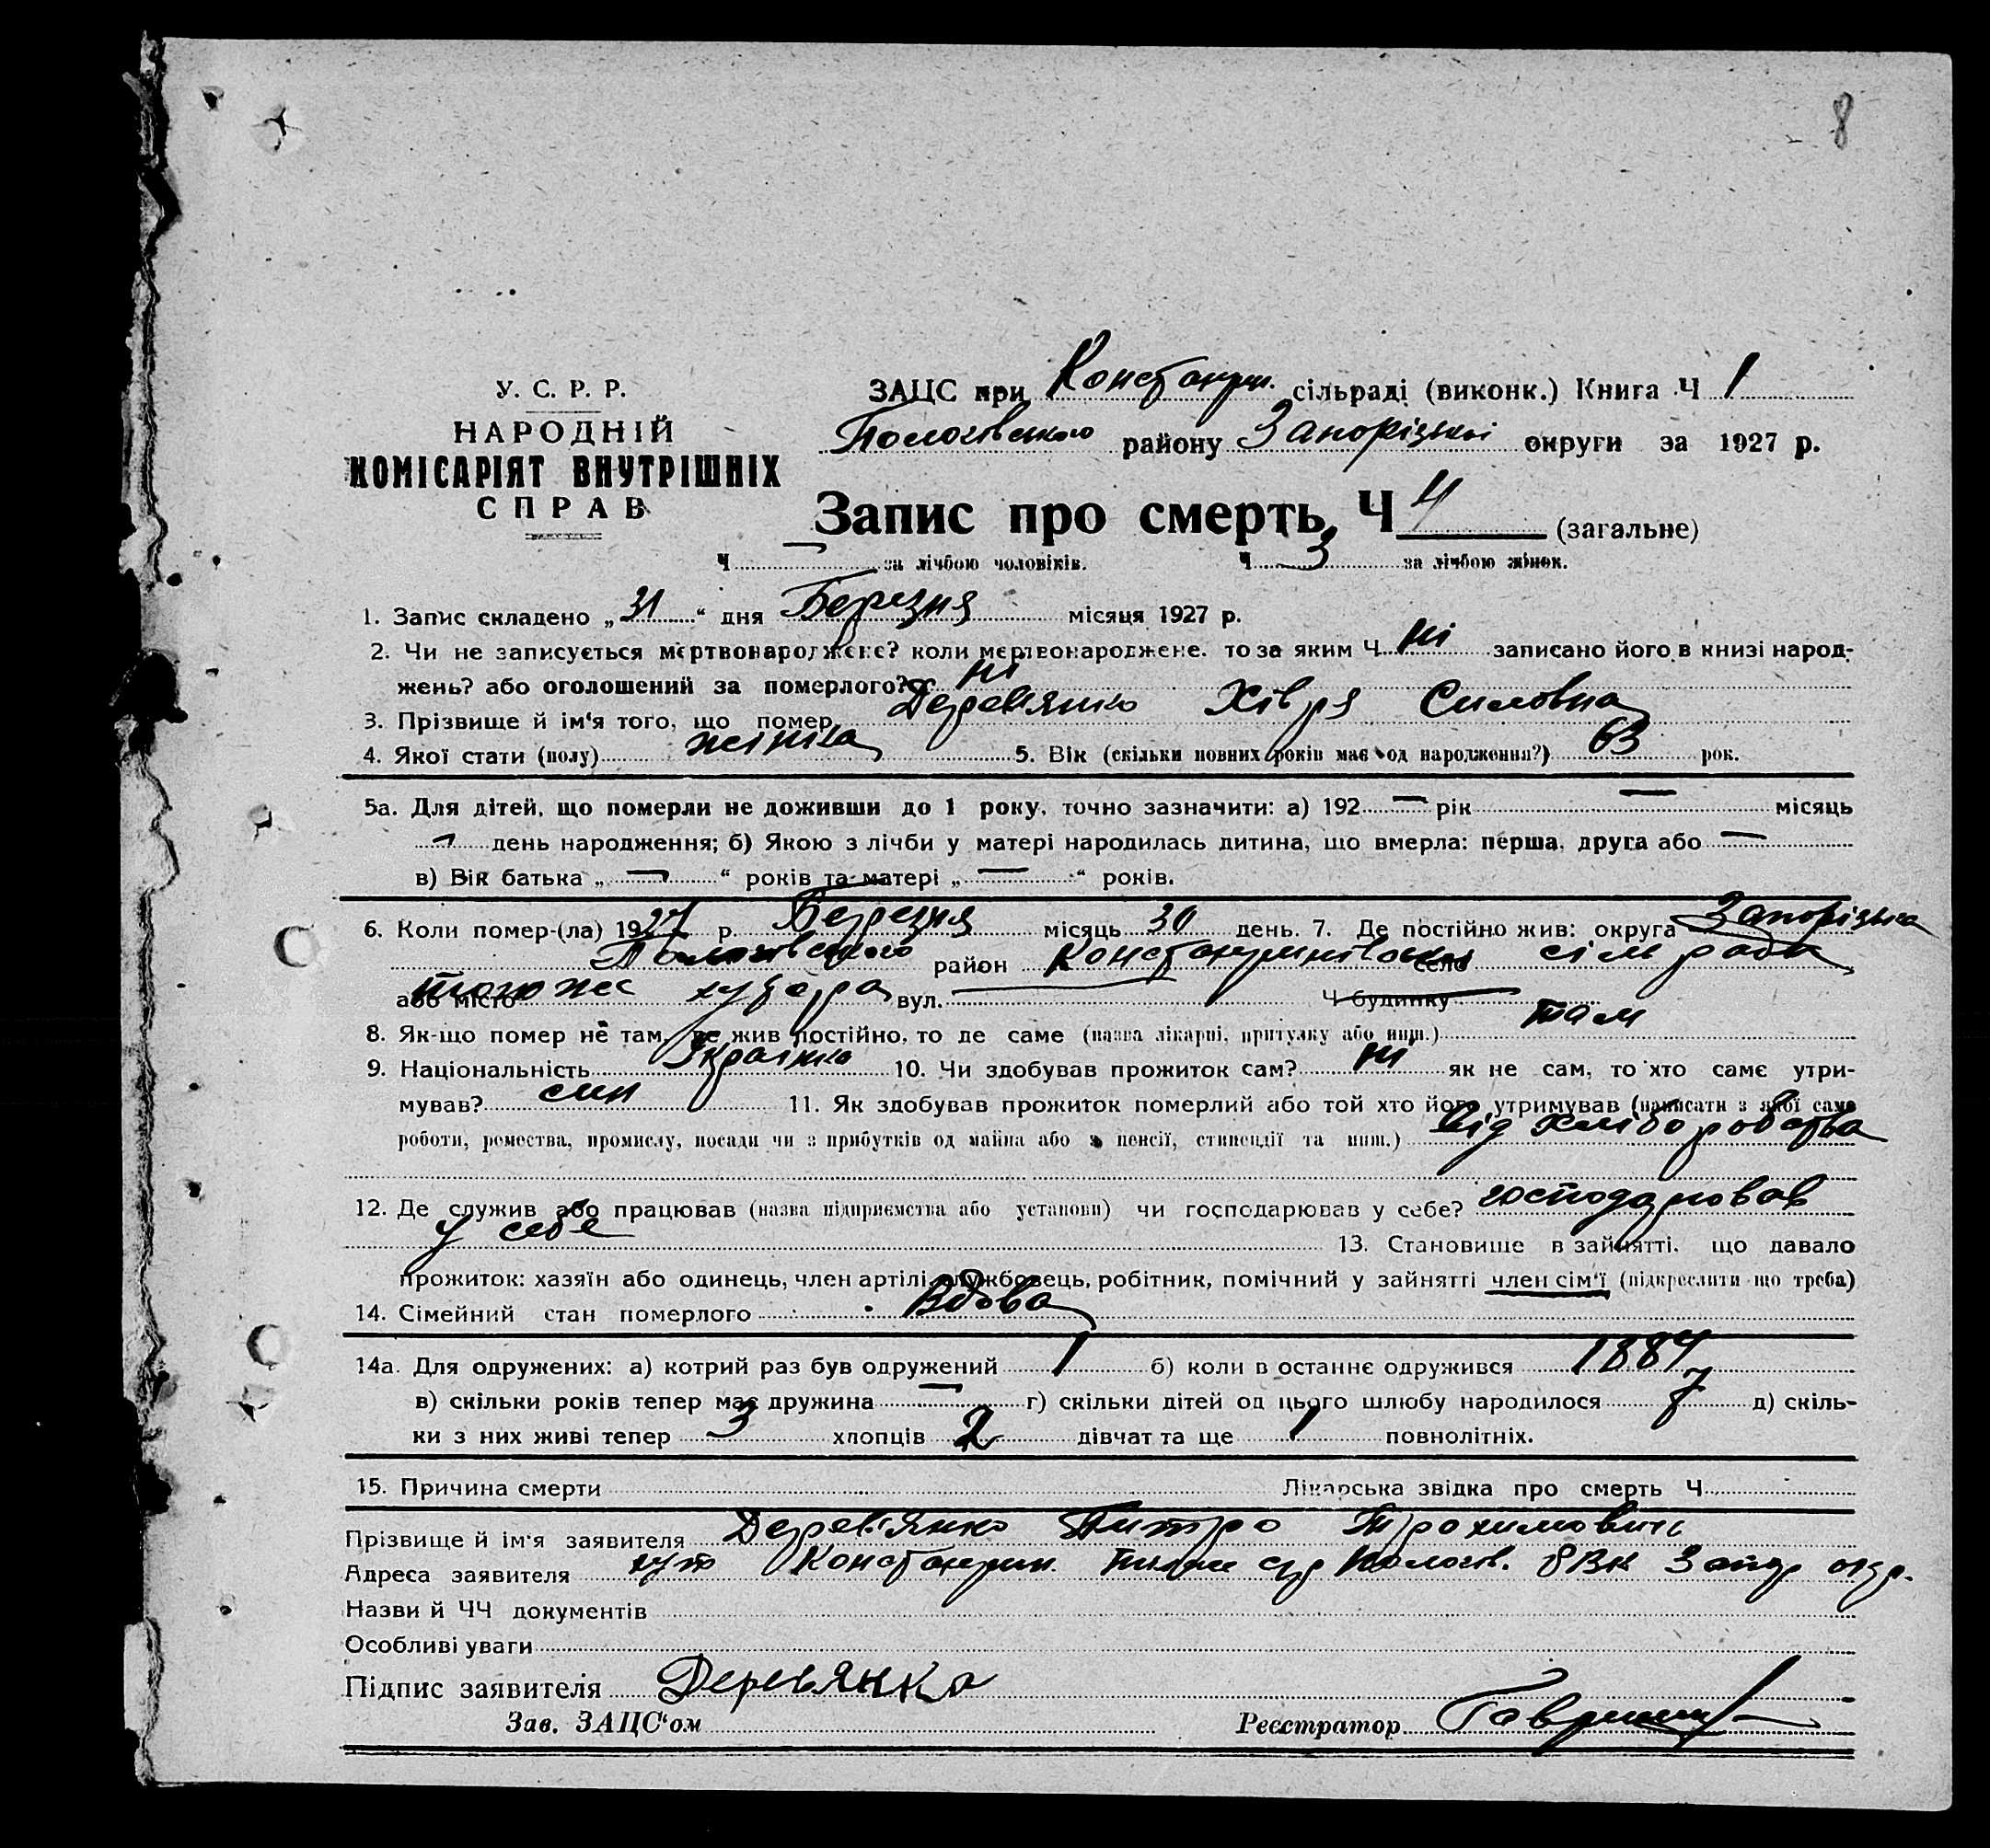 8
У. С. Р. Р.
НАРОДНІЙ
КОМІСАРІЯТ ВНУТРІШНІХ
СПРАВ
ЗАЦС при Констант. сільраді (виконк.) Книга Ч 1
Пологівського району Запорізької округи за 1927 р.
Запис про смерть, Ч 4 (загальне)
Ч — за лічбою чоловіків. Ч 3 за лічбою жінок.
1. Запис складено „31“ дня Березня місяця 1927 р.
2. Чи не записується мертвонароджене? коли мертвонароджене. то за яким Ч ні записано його в книзі народ-
жень? або оголошений за померлого? ні
3. Прізвище й ім'я того, що помер Дерев'янко Хівря Силовна
4. Якої стати (полу) жінка 5. Вік (скільки повних років має од народження?) 63 рок.
5а. Для дітей, що померли не доживши до 1 року, точно зазначити: а) 192 — рік — місяць
— день народження; б) Якою з лічби у матері народилась дитина, що вмерла: перша, друга або —
в) Вік батька „ — “ років та матері „ — “ років.
6. Коли помер-(ла) 1927 р. Березня місяць 30 день. 7. Де постійно жив: округа Запорізька
Пологівського район Константинівська село сільрада
або місто того же хутора вул. — Ч будинку
8. Як-що помер не там, де жив постійно, то де саме (назва лікарні, притулку або инш.) там
9. Національність Українка 10. Чи здобував прожиток сам? ні як не сам, то хто саме утри-
мував? син 11. Як здобував прожиток померлий або той хто його утримував (написати з якої само
роботи, ремества, промислу, посади чи з прибутків од майна або з пенсії, стипендії та инш.) від хліборобства
12. Де служив або працював (назва підприємства або установи) чи господарював у себе? господарював
у себе 13. Становище в зайнятті, що давало
прожиток: хазяїн або одинець, член артілі, службовець, робітник, помічний у зайнятті член сім'ї (підкреслити що треба)
14. Сімейний стан померлого Вдова
14а. Для одружених: а) котрий раз був одружений 1 б) коли в останнє одружився 1884
в) скільки років тепер має дружина — г) скільки дітей од цього шлюбу народилося 7 д) скіль-
ки з них живі тепер 3 хлопців 2 дівчат та ще 1 повнолітніх.
15. Причина смерти Лікарська звідка про смерть Ч
Прізвище й ім'я заявителя Дерев'янко Питро Трохимович
Адреса заявителя хут Константин. с/р Пологів. РВК Запор окр.
Назви й ЧЧ документів
Особливі уваги
Підпис заявителя Деревянко
Зав. ЗАЦС'ом Реєстратор